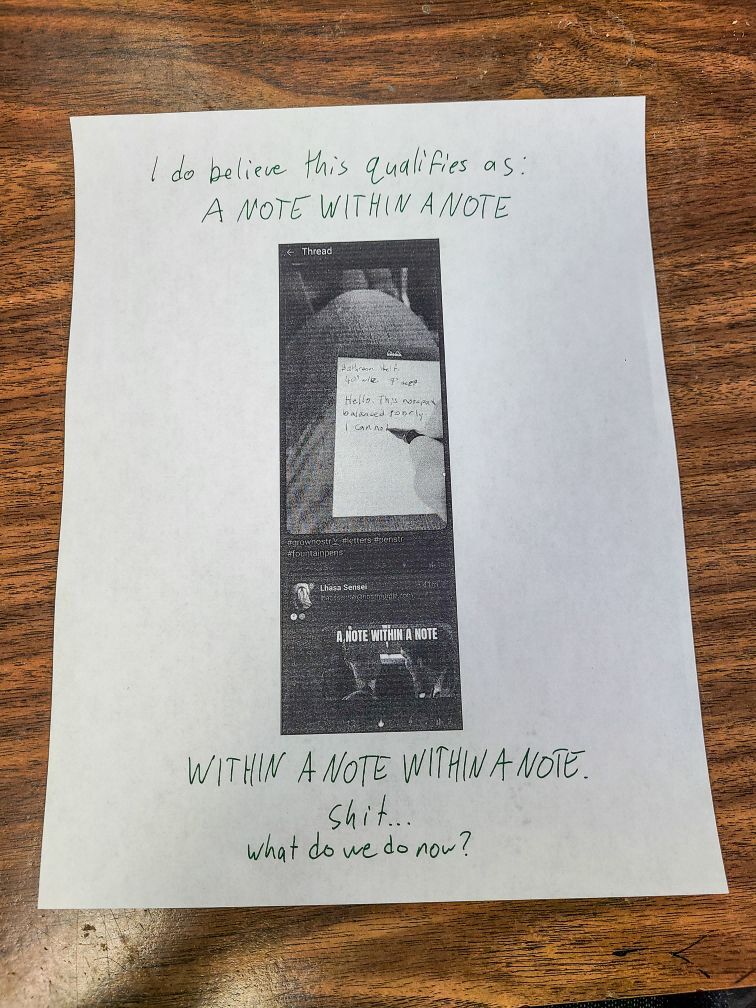 I do believe this qualifies as:
A NOTE WITHIN A NOTE
← Thread
Hello. This notepad
balanced
I cannot
#grownostr #letters #penstr
#fountainpens
Lhasa Sensei
A NOTE WITHIN A NOTE
WITHIN A NOTE WITHIN A NOTE.
shit...
what do we do now?